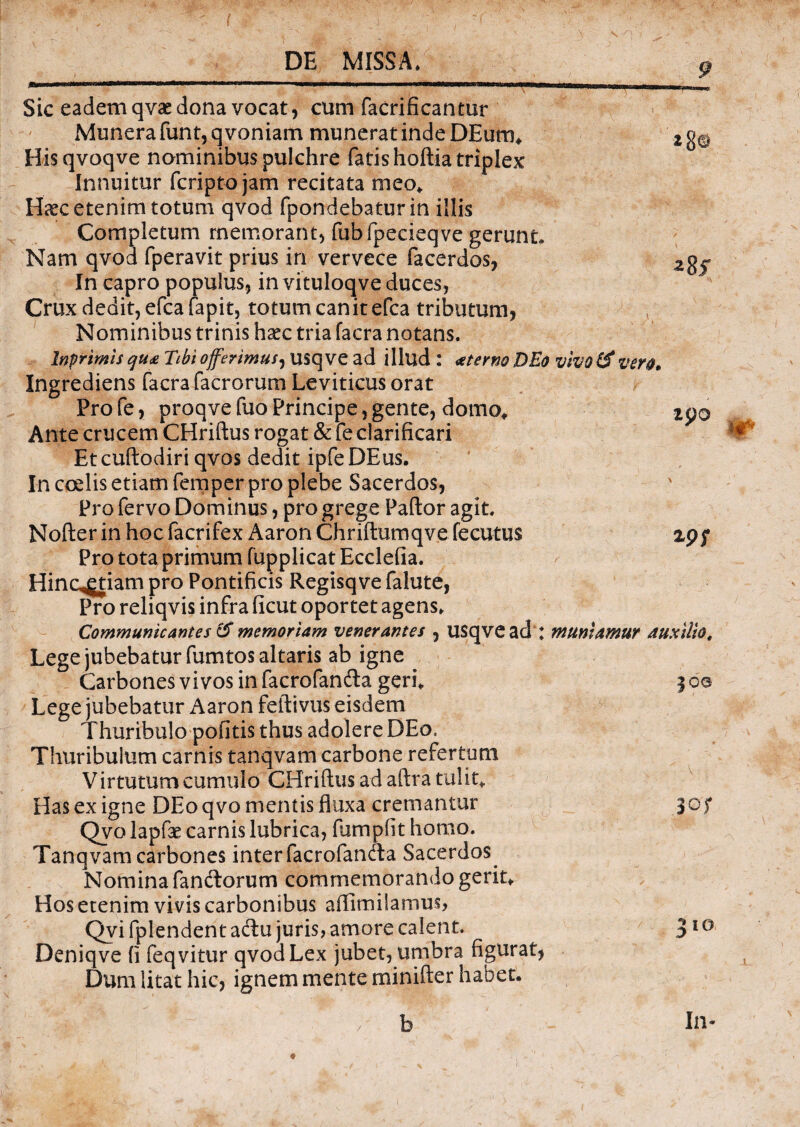 DE MISSA.
9
Sic eadem qvæ dona vocat, cum ſacrificantur
Munera ſunt, qvoniam munerat inde DEum.
280
His qvoqve nominibus pulchre ſatis hoſtia triplex
Innuitur ſcripto jam recitata meo.
Hæc etenim totum qvod ſpondebatur in illis
Completum memorant, ſub ſpecieqve gerunt.
Nam qvod ſperavit prius in vervece ſacerdos,
285
In capro populus, in vituloqve duces,
Crux dedit, eſca ſapit, totum canit eſca tributum,
Nominibus trinis hæc tria ſacra notans.
Inprimis quæ Tibi offerimus, usqve ad illud: æterno DEo vivo & vero.
Ingrediens ſacra ſacrorum Leviticus orat
Pro ſe, proqve ſuo Principe, gente, domo.
290
Ante crucem CHriſtus rogat & ſe clarificari
Et cuſtodiri qvos dedit ipſe DEus.
In cœlis etiam ſemper pro plebe Sacerdos,
Pro ſervo Dominus, pro grege Paſtor agit.
Noſter in hoc ſacrifex Aaron Chriſtumqve ſecutus
295
Pro tota primum ſupplicat Eccleſia.
Hinc etiam pro Pontificis Regisqve ſalute,
Pro reliqvis infra ſicut oportet agens.
Communicantes & memoriam venerantes, usqve ad: muniamur auxilio.
Lege jubebatur ſumtos altaris ab igne
Carbones vivos in ſacroſancta geri.
300
Lege jubebatur Aaron feſtivus eisdem
Thuribulo poſitis thus adolere DEo.
Thuribulum carnis tanqvam carbone refertum
Virtutum cumulo CHriſtus ad aſtra tulit.
Has ex igne DEo qvo mentis fluxa cremantur
305
Qvo lapſæ carnis lubrica, ſumpſit homo.
Tanqvam carbones inter ſacroſancta Sacerdos
Nomina ſanctorum commemorando gerit.
Hos etenim vivis carbonibus aſſimilamus,
Qvi ſplendent actu juris, amore calent.
310
Deniqve ſi ſeqvitur qvod Lex jubet, umbra figurat,
Dum litat hic, ignem mente miniſter habet.
b
In-